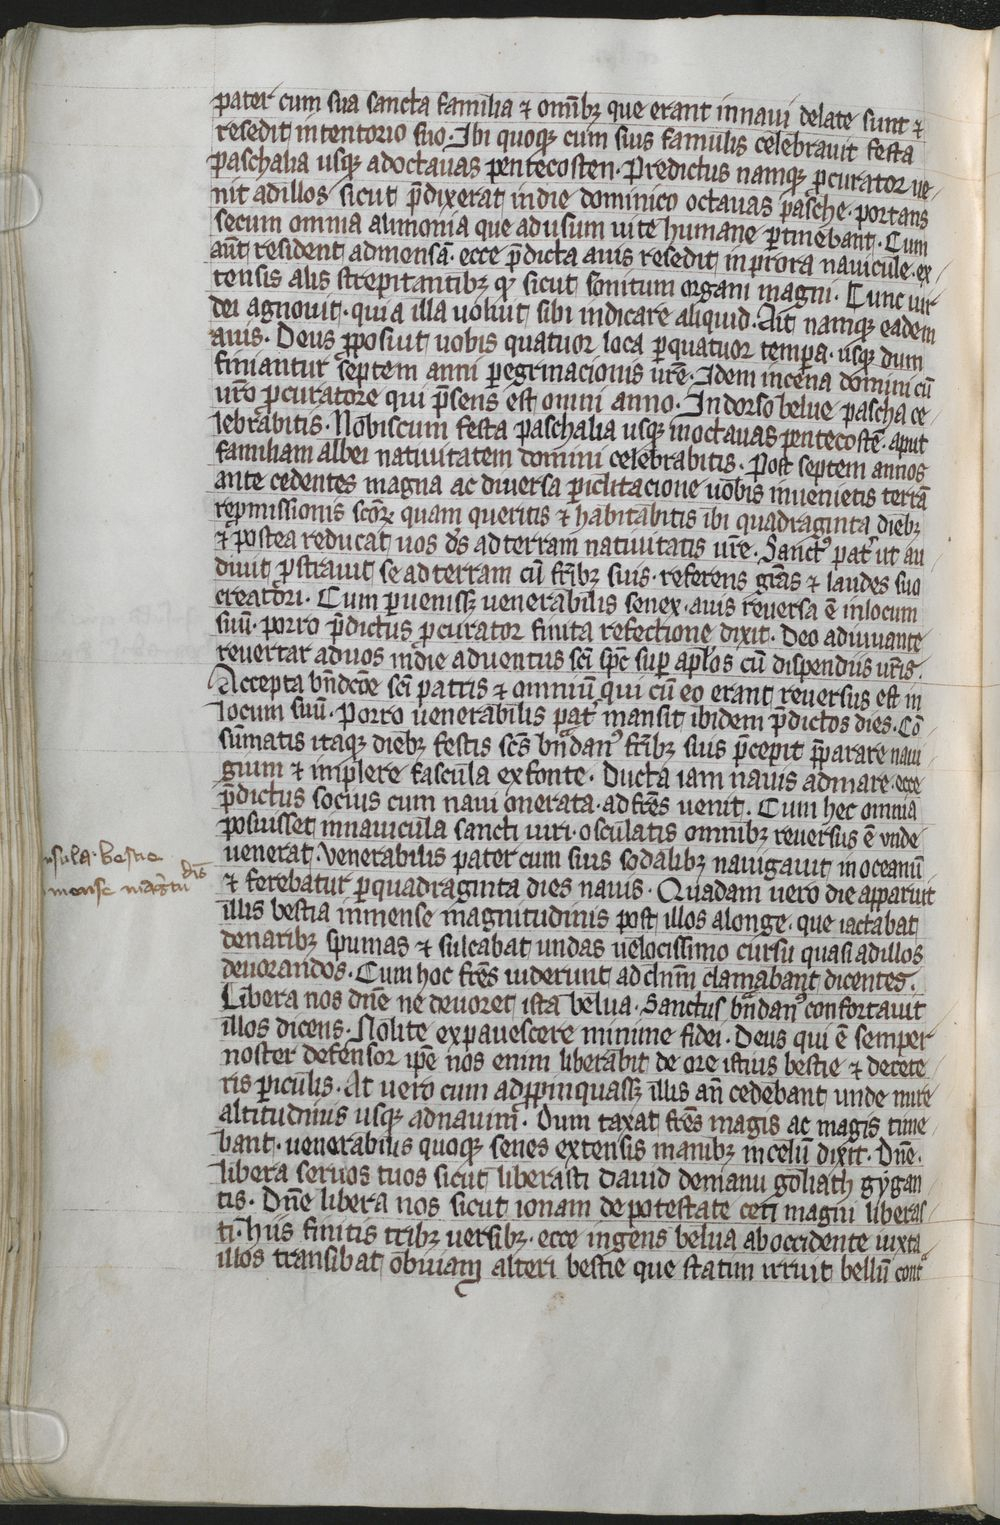 pater cum sua sancta familia ⁊ omībꝫ que erant in naui delate sunt ⁊
resedit in tentorio suo. Ibi quoqꝫ cum suis famulis celebrauit festa
paschalia usqꝫ ad octauas pentecosten. Predictus namqꝫ ꝓcurator ue
nit ad illos sicut p̄dixerat in die dominico octauas pasche. portans
secum omnia alimonia que ad usum uite humane ꝑtinebant. Cum
aūt resident ad mensā. ecce p̄dicta auis resedit in prora nauicule. ex
tensis alis strepitantibꝫ qꝫ sicut sonitum organi magni. Tunc uir
dei agnouit. quia illa uoluit sibi indicare aliquid. Ait namqꝫ eadem
auis. Deus ꝓposuit uobis quatuor loca ꝑ quatuor tempora. usqꝫ dum
finiantur septem anni ꝑegrinacionis ur̄e. Idem in cena domini cū
ur̄o ꝓcuratore qui p̄sens est omni anno. In dorso belue pascha ce
lebrabitis. Nobiscum festa paschalia usqꝫ in octauas pentecostē. aput
familiam albei natiuitatem domini celebrabitis. Post septem annos
ante cedentes magna ac diuersa ꝑiclitacione uobis inuenietis terrā
repromissionis sc̄oꝝ quam queritis ⁊ habitabitis ibi quadraginta diebꝫ
⁊ postea reducat uos d̄s ad terram natiuitatis ur̄e. Sanctꝰ pat͛ ut au
diuit ꝓstrauit se ad terram cū fr̄ibꝫ suis. referens gr̄as ⁊ laudes suo
creatori. Cum ꝑuenissꝫ uenerabilis senex. auis reuersa ē in locum
suū. porro p̄dictus ꝓcurator finita refectione dixit. Deo adiuuante
reuertar ad uos in die aduentus sc̄i sp̄c suꝑ ap̄los cū dispendiis ur̄is.
Accepta bn̄dcōe sc̄i patris ⁊ omniū qui cū eo erant reuersus est in
locum suū. Porro uenerabilis pat͛ mansit ibidem p̄dictos dies. Cō
sūmatis itaqꝫ diebꝫ festis sc̄s bn̄danꝰ fr̄ibꝫ suis p̄cepit p̄parare naui
gium ⁊ implere fascula ex fonte. Ducta iam nauis ad mare. ecce
p̄dictus socius cum naui onerata. ad fr̄es uenit. Cum hec omnia
posuisset in nauicula sancti uiri. osculatis omnibꝫ reuersus ē unde
uenerat. Uenerabilis pater cum suis sodalibꝫ nauigauit in oceanū
⁊ ferebatur ꝑ quadraginta dies nauis. Quadam uero die apparuit
illis bestia inmense magnitudinis post illos a longe. que iactabat
de naribꝫ spumas ⁊ sulcabat undas uelocissimo cursu quasi ad illos
deuorandos. Cum hoc fr̄es uiderunt ad dn̄m clamabant dicentes.
Libera nos dn̄e ne deuoret ista belua. Sanctus bn̄danꝰ confortauit
illos dicens. Nolite expauescere minime fidei. Deus qui ē semper
noster defensor ip̄e nos enim liberabit de ore istius bestie ⁊ de cete
ris ꝑiculis. At uero cum adꝓpinquassꝫ illis an̄ cedebant unde mire
altitudinis usqꝫ ad nauim. Dum taxat fr̄es magis ac magis time
bant. uenerabilis quoqꝫ senes extensis manibꝫ in celū dixit. Dn̄e.
libera seruos tuos sicut liberasti dauid de manu goliath gygan
tis. Dn̄e libera nos sicut ionam de potestate ceti magni liberas
ti. hiis finitis tribꝫ uersibꝫ. ecce ingens belua ab occidente iuxta
illos transibat obuiam alteri bestie que statim irruit bellū cont͛
nsula bestie
inmense mag̅tu dīs